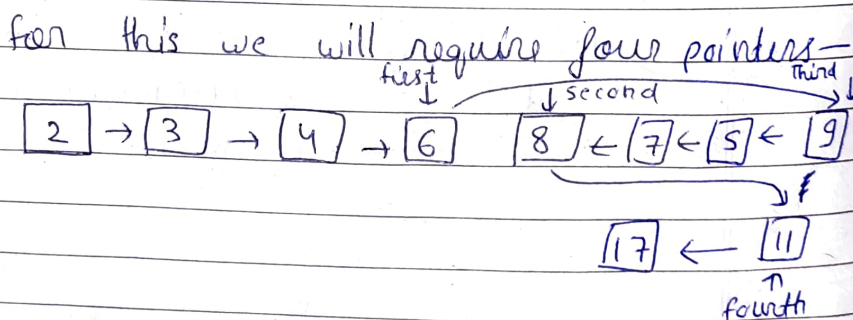 for this we will require four pointers—
first Third
↓ second ↓
2 → 3 → 4 → 6 8 ← 7 ← 5 ← 9
17 ← 11
↑
fourth